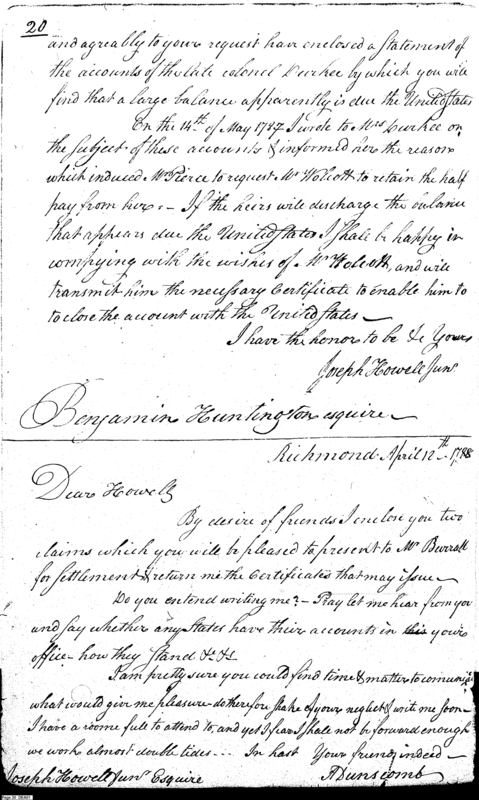 20
and agreably to your request have enclosed a Statement of
the accounts of the late colonel Durkee by which you will
find that a large balance apparently is due the United States
On the 14th of May 1787 I wrote to Mrs Durkee on
the subject of these accounts & informed her the reason
which induced Mr Pierce to request Mr Wolcott to retain the half
pay from her. - If the heirs will discharge the balance
that appears due the United States I shall be happy in
complying with the wishes of Mr Wolcott, and will
transmit him the necessary Certificate to enable him to
to close the account with the United States -
I have the honor to be &c Yours
Joseph Howell Junr
Benjamin Huntington esquire
Richmond April 12th 1788
Dear Howell
By desire of friends I enclose you two
claims which you will be pleased to present to Mr Burrall
for settlement & return me the Certificates that may issue -
Do you entend writing me? - Pray let me hear from you
and say whether any States have their accounts in your
office - how they stand &c &c
I am pretty sure you could find time & matter to comunicate
what would give me pleasure - do therefore shake of your neglect & write me soon -
I have a roome full to attend to, and yet I fear I shall not be forward enough
we work almost double tides - - - In hast Your friend indeed -
Joseph Howell Junr Esquire A Dunscomb